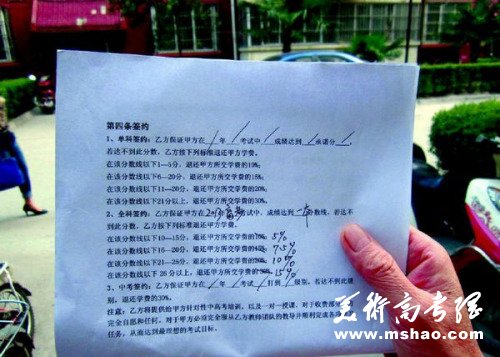 第四条签约
1、单科签约：乙方保证甲方在 / 年 / 考试中 / 成绩达到 / 承诺分 /，
若达不到此分数，乙方按下列标准退还甲方学费。
在该分数线以下1—5分，退还甲方所交学费的10%；
在该分数线以下6—20分，退还甲方所交学费的15%；
在该分数线以下11—20分，退还甲方所交学费的20%；
在该分数线以下21分以上，退还甲方所交学费的30%。
2、全科签约：乙方保证甲方在 考试中，成绩达到 一本 分数线，若达不
到此分数，乙方按下列标准退还甲方学费。
在该分数线以下10—15分，退还甲方所交学费的 5%
在该分数线以下16—20分，退还甲方所交学费的 75%
在该分数线以下21—25分，退还甲方所交学费的 10%
在该分数线以下 26 分以上，退还甲方所交学费的 15%
3、中考签约：乙方保证甲方在 / 年 / 考试 / 打到 / 级别，若达不到此级
别，退还学费的30%。
注意：乙方将提供给甲方针对性中高考培训，以及一对一授课，对于收费部
完全自愿和任何，对于甲方必须完全服从乙方教师团队的教导并顺利完成各
任务，从而达到最理想的考试目标。
美术高考强
www.mshao.com